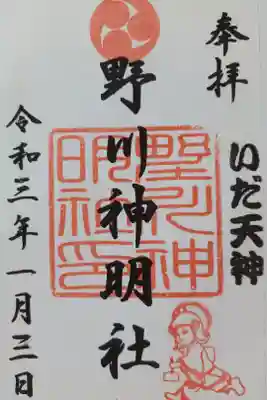 奉拝
いだ天神
野川神明社
野川神
明社印
令和三年一月三日